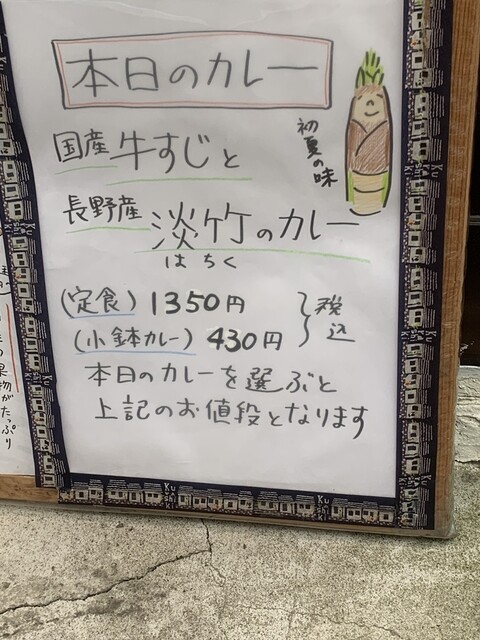 本日のカレー
国産牛すじと
初夏の味
長野産 淡竹のカレー
はちく
(定食) 1350円
(小鉢カレー) 430円
税込
本日のカレーを選ぶと
上記のお値段となります
果物がたっぷり